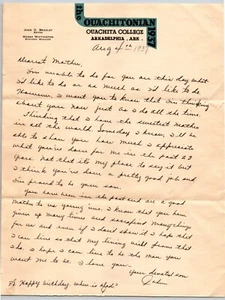 The
OUACHITONIAN
1937
OUACHITA COLLEGE
ARKADELPHIA, ARK.
JOHN D. BRADLEY
EDITOR
Aug 4th 1937
Dearest Mother,
I'm unable to do for you on this day what
I'd like to do or as much as I'd like to do
However, I want you to know that I'm thinking
about you now just as I do all the time
Thinking that I have the sweetest mother
in all the world. Someday I know, I'll be
able to show you how much I appreciate
what you've done for me in the past 23
years. Not that its my place to say it but
I think you've done a pretty good job and
I'm proud to be your son.
You have been in the past and are a good
mother to us young'uns. I know that you have
given up many times and sacrificed many things
for us and even if I don't show it I hope that
I can live so that my living will prove that
to. I hope I can live to be the man you
want me to be. I love you.
Your devoted son
John
P.S. Happy birthday